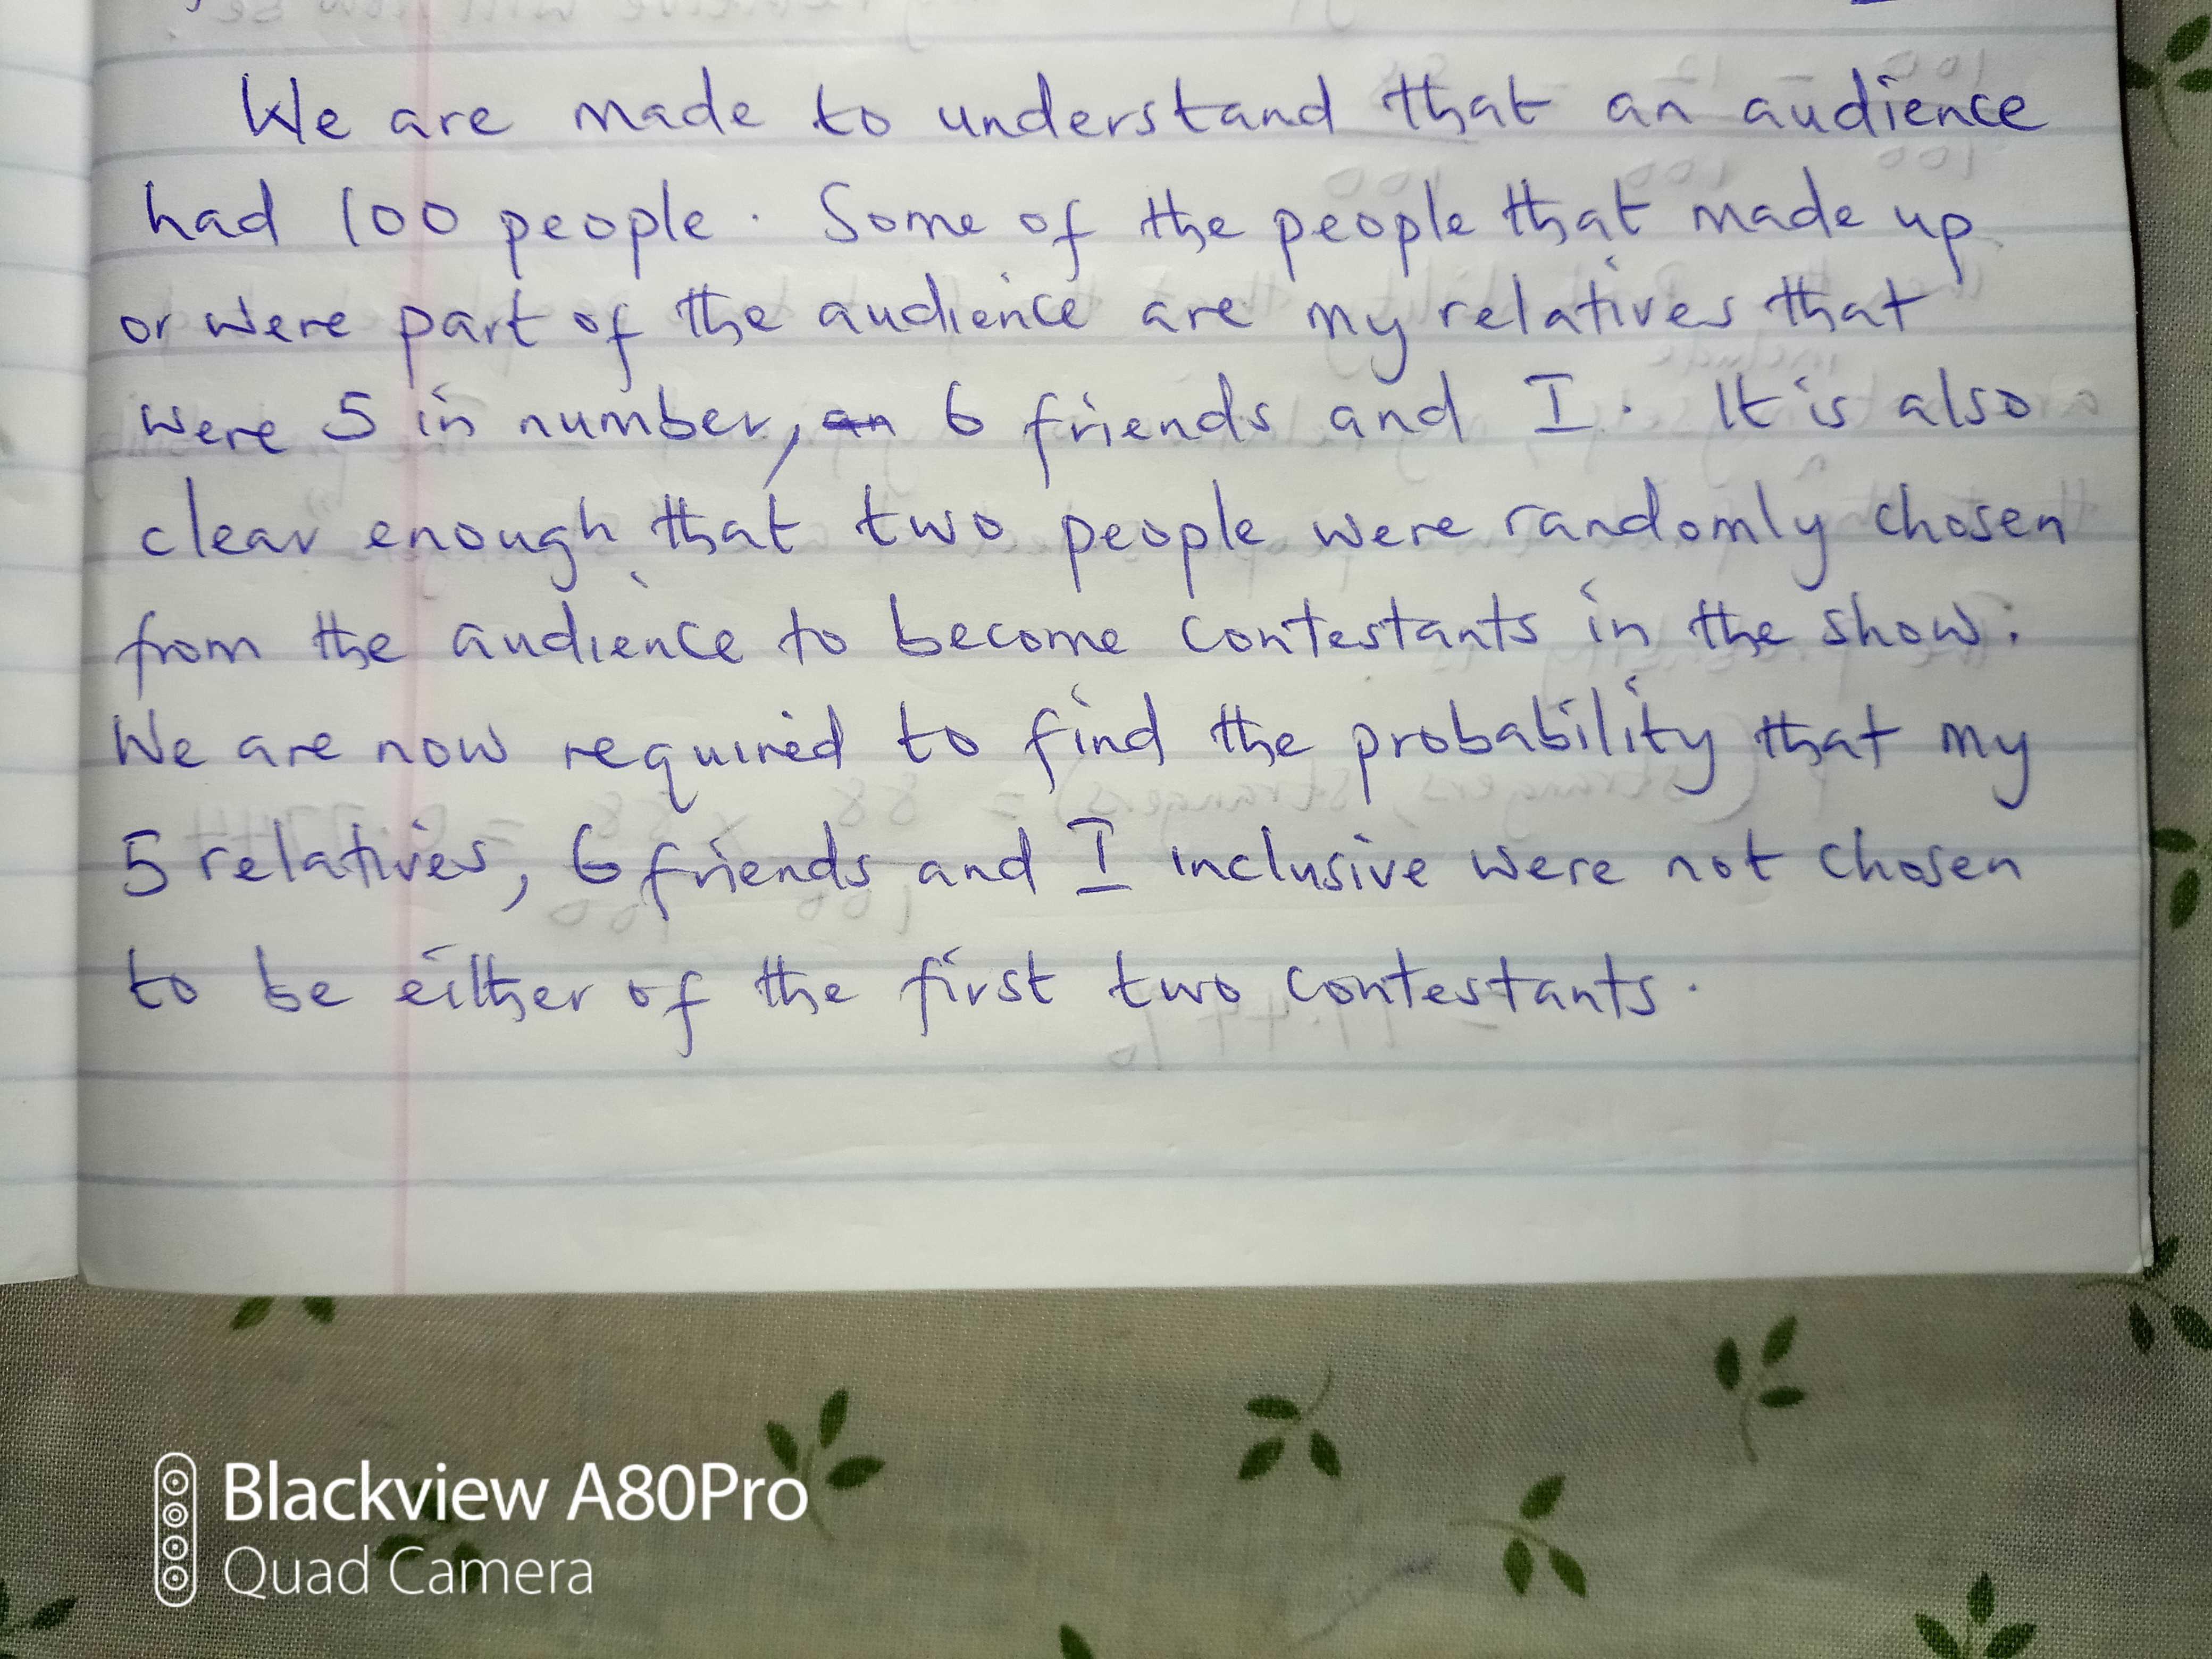 We are made to understand that an audience
had 100 people. Some of the people that made up
or were part of the audience are my relatives that
were 5 in number, an 6 friends and I. It is also
clear enough that two people were randomly chosen
from the audience to become contestants in the show.
We are now required to find the probability that my
5 relatives, 6 friends and I inclusive were not chosen
to be either of the first two contestants.
Blackview A80Pro
Quad Camera